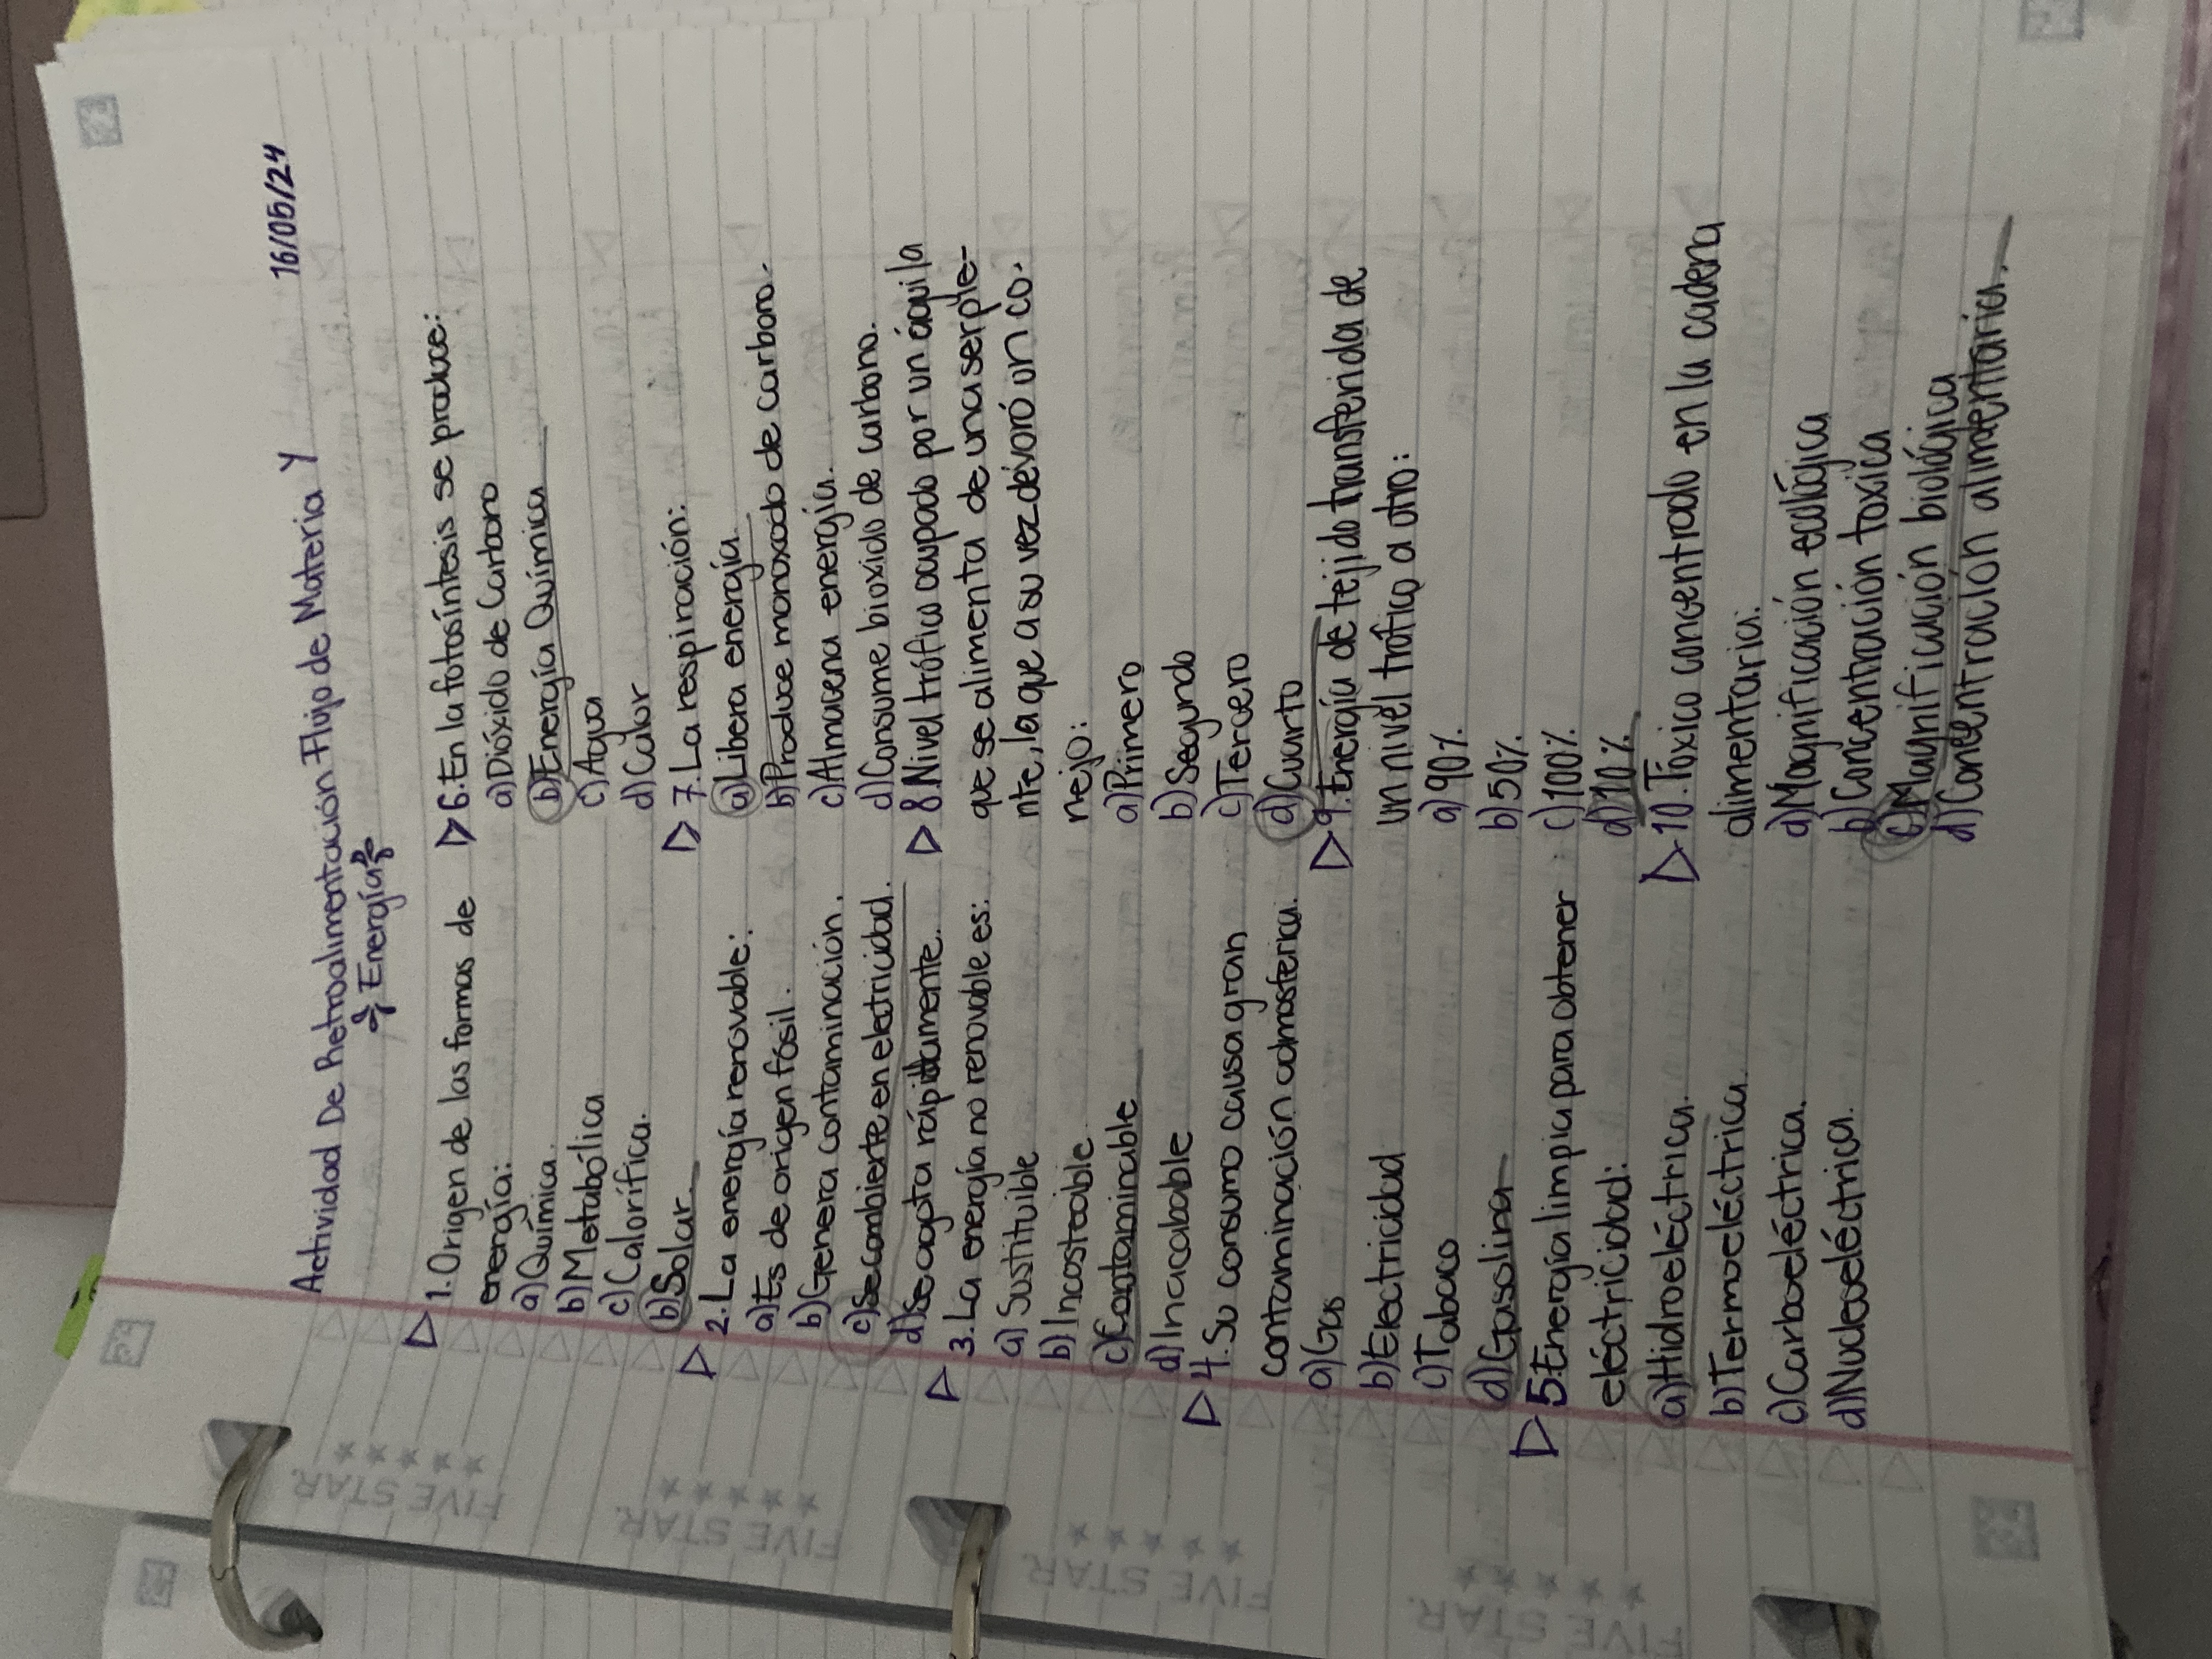 16/05/24
Actividad De Retroalimentación Flujo de Materia Y
Energía
1. Origen de las formas de
energía:
a) Química.
b) Metabólica
c) Calorífica.
b) Solar.
2. La energía renovable:
a) Es de origen fósil.
b) Genera contaminación.
c) Se combierte en electricidad.
d) Se agota rápidamente.
3. La energía no renovable es:
a) Sustituible
b) Incosteable
c) Contaminable
d) Inacabable
4. Su consumo causa gran
contaminación admosferica.
a) Gas
b) Electricidad
c) Tabaco
d) Gasolina
5. Energía limpia para obtener
eléctricidad:
a) Hidroeléctrica.
b) Termoeléctrica.
c) Carboeléctrica.
d) Nucleoeléctrica.
6. En la fotosíntesis se produce:
a) Dióxido de Carbono
b) Energía Química
c) Agua
d) Calor
7. La respiración:
a) Libera energía.
b) Produce monoxodo de carbono.
c) Almacena energía.
d) Consume bioxido de carbono.
8. Nivel trófico ocupado por un águila
que se alimenta de una serpie-
nte, la que a su vez devoró un co-
nejo:
a) Primero
b) Segundo
c) Tercero
d) Cuarto
9. Energía de tejido transferida de
un nivel trófico a otro:
a) 90%
b) 50%
c) 100%
d) 10%
10. Tóxico concentrado en la cadena
alimentaria:
a) Magnificación ecológica
b) Concentración toxica
c) Magnificación biológica
d) Concentración alimentaria.
FIVE STAR.
FIVE STAR.
FIVE STAR.
FIVE STAR.